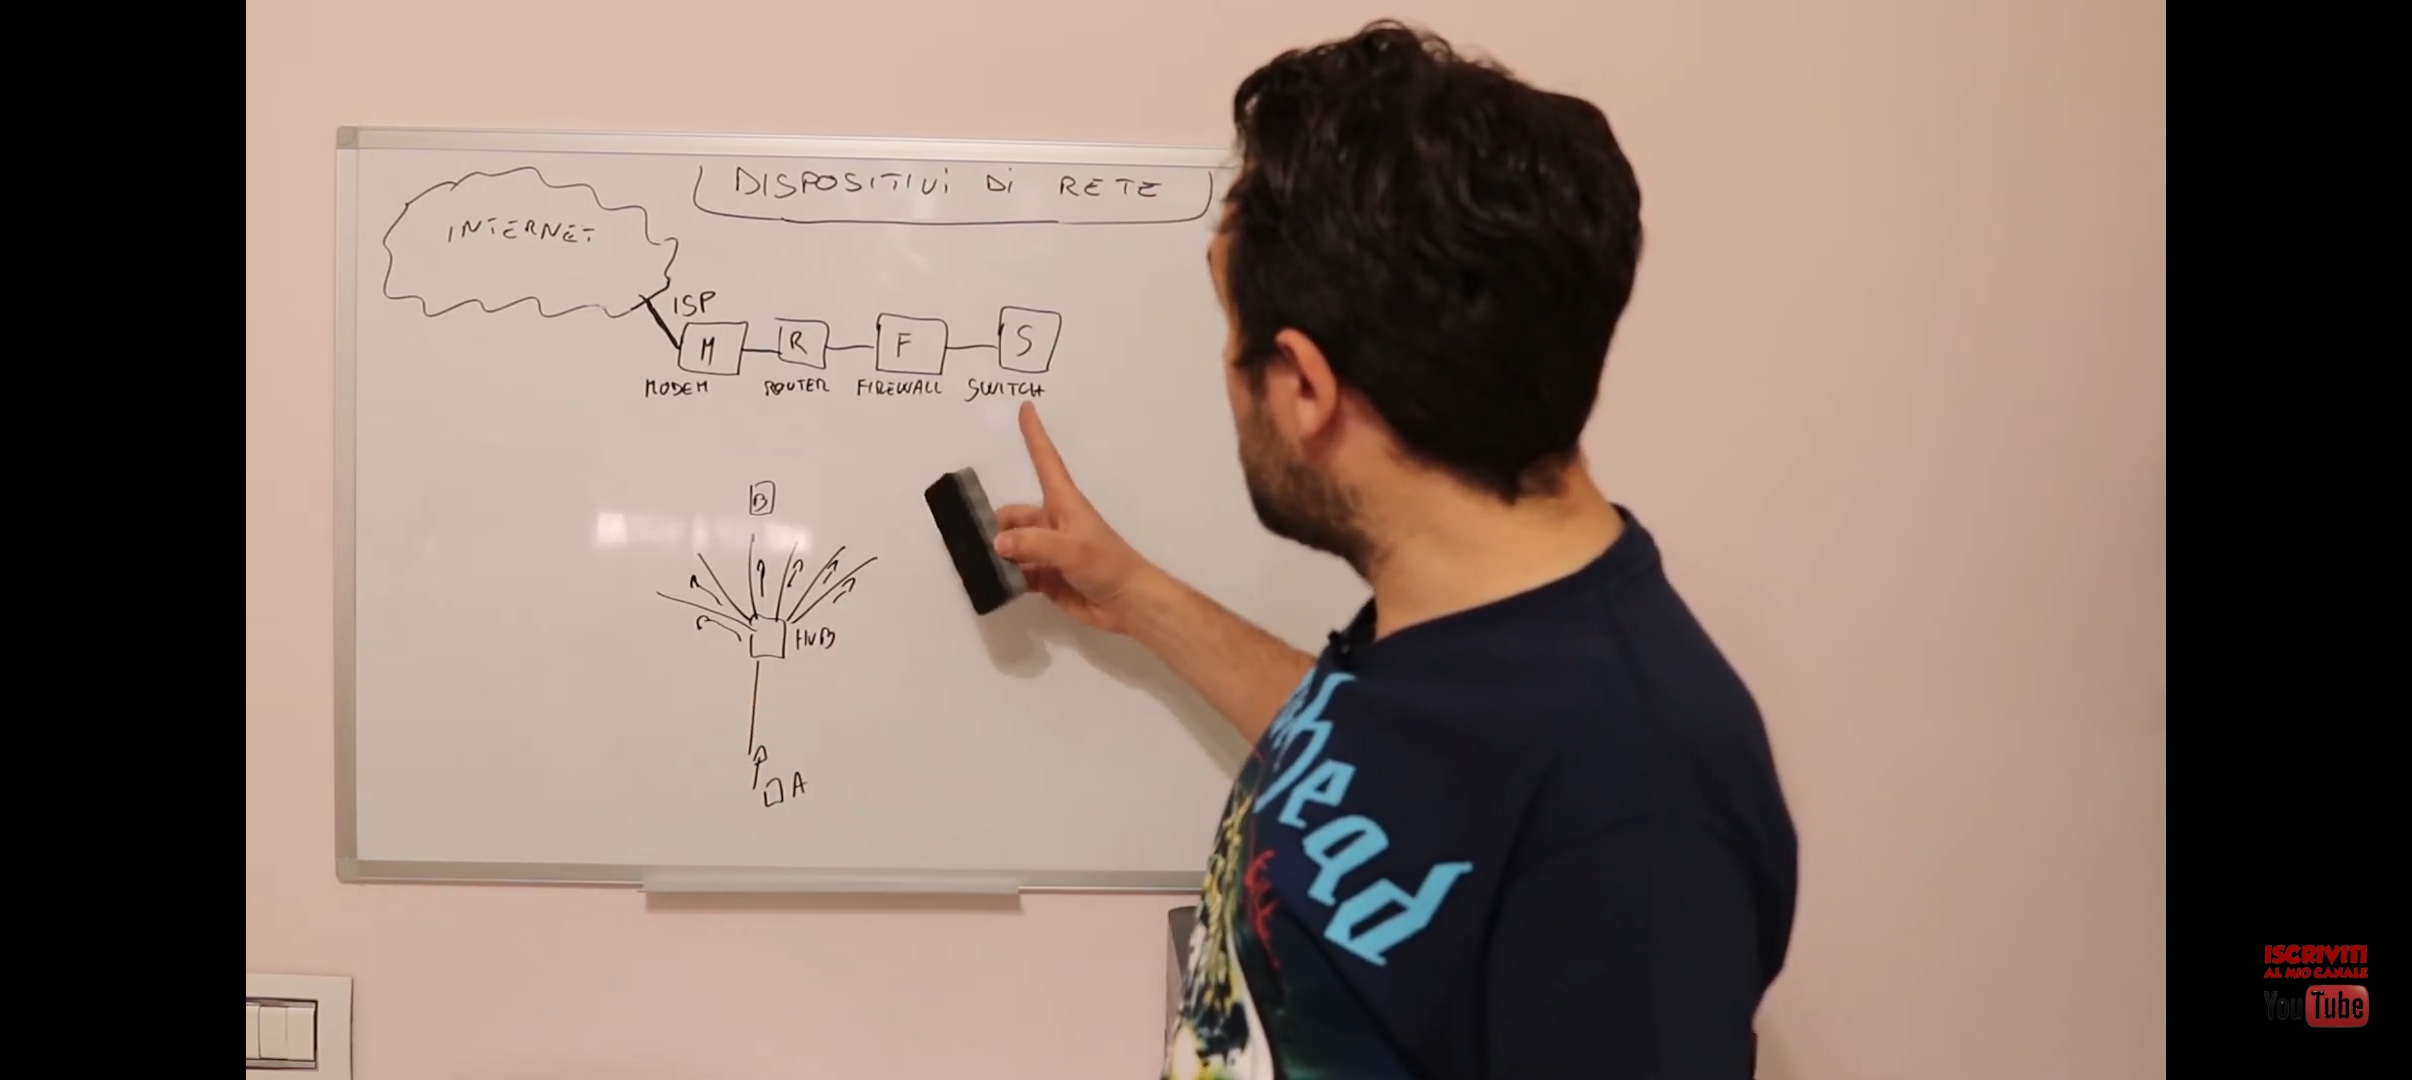 DISPOSITIVI DI RETE
INTERNET
ISP
M
R
F
S
MODEM
ROUTER
FIREWALL
SWITCH
B
HUB
A
head
ISCRIVITI
AL MIO CANALE
YouTube